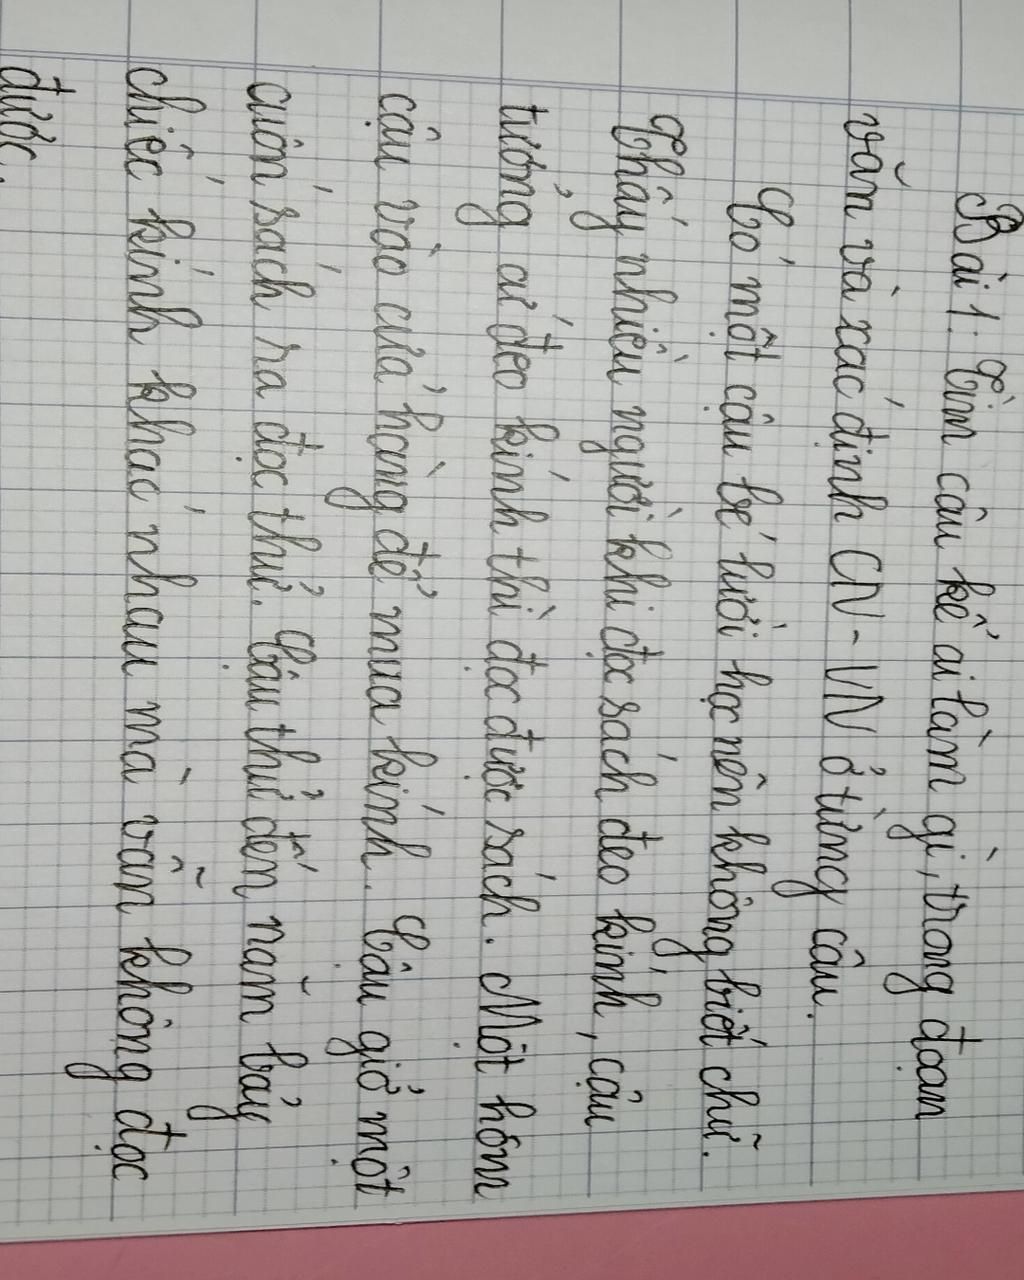 Bài 1: Tìm câu kể ai làm gì, trong đoạn
văn và xác định CN - VN ở từng câu.
Có một cậu bé lười học nên không biết chữ.
Thấy nhiều người khi đọc sách đeo kính, cậu
tưởng ai đeo kính thì đọc được sách. Một hôm
cậu vào cửa hàng để mua kính. Cậu giở một
cuốn sách ra đọc thử. Cậu thử đến năm bảy
chiếc kính khác nhau mà vẫn không đọc
được.